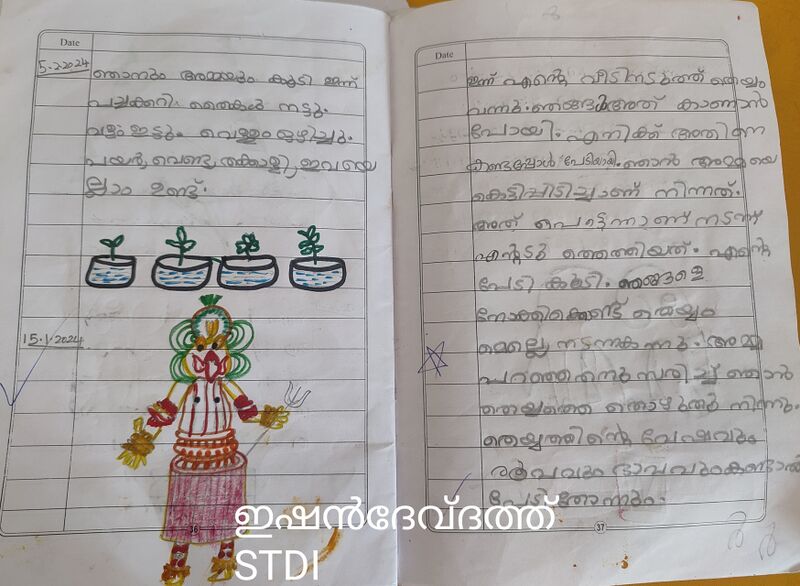 Date
5.2.2024
ഞാനും അമ്മയും കൂടി ഇന്ന്
പച്ചക്കറി തൈകൾ നട്ടു.
വളം ഇട്ടും വെള്ളം ഒഴിച്ചും.
പയർ, വെണ്ട, തക്കാളി, ഇവയെ
ല്ലാം ഉണ്ട്.
15.1.2024
36
Date
ഇന്ന് എന്റെ വീടിനടുത്ത് തെയ്യം
വന്നു. ഞങ്ങൾ അത് കാണാൻ
പോയി. എനിക്ക് അതിനെ
കണ്ടപ്പോൾ പേടിയായി. ഞാൻ അമ്മയെ
കെട്ടിപ്പിടിച്ചാണ് നിന്നത്.
അത് പെട്ടന്നാണ് നടന്ന്
എന്റെ
പേടി കൂടി. ഞങ്ങളെ
നോക്കിക്കൊണ്ട് തെയ്യം
മെല്ലെ നടന്നകന്നു. അമ്മ
പറഞ്ഞതിനനുസരിച്ച് ഞാൻ
തെയ്യത്തെ തൊഴുതു നിന്നും.
തെയ്യത്തിന്റെ വേഷവും
രൂപവും ഭാവവും കണ്ടാൽ
പേടി തോന്നും.
37
ഇഷൻദേവ്ദത്ത്
STDI